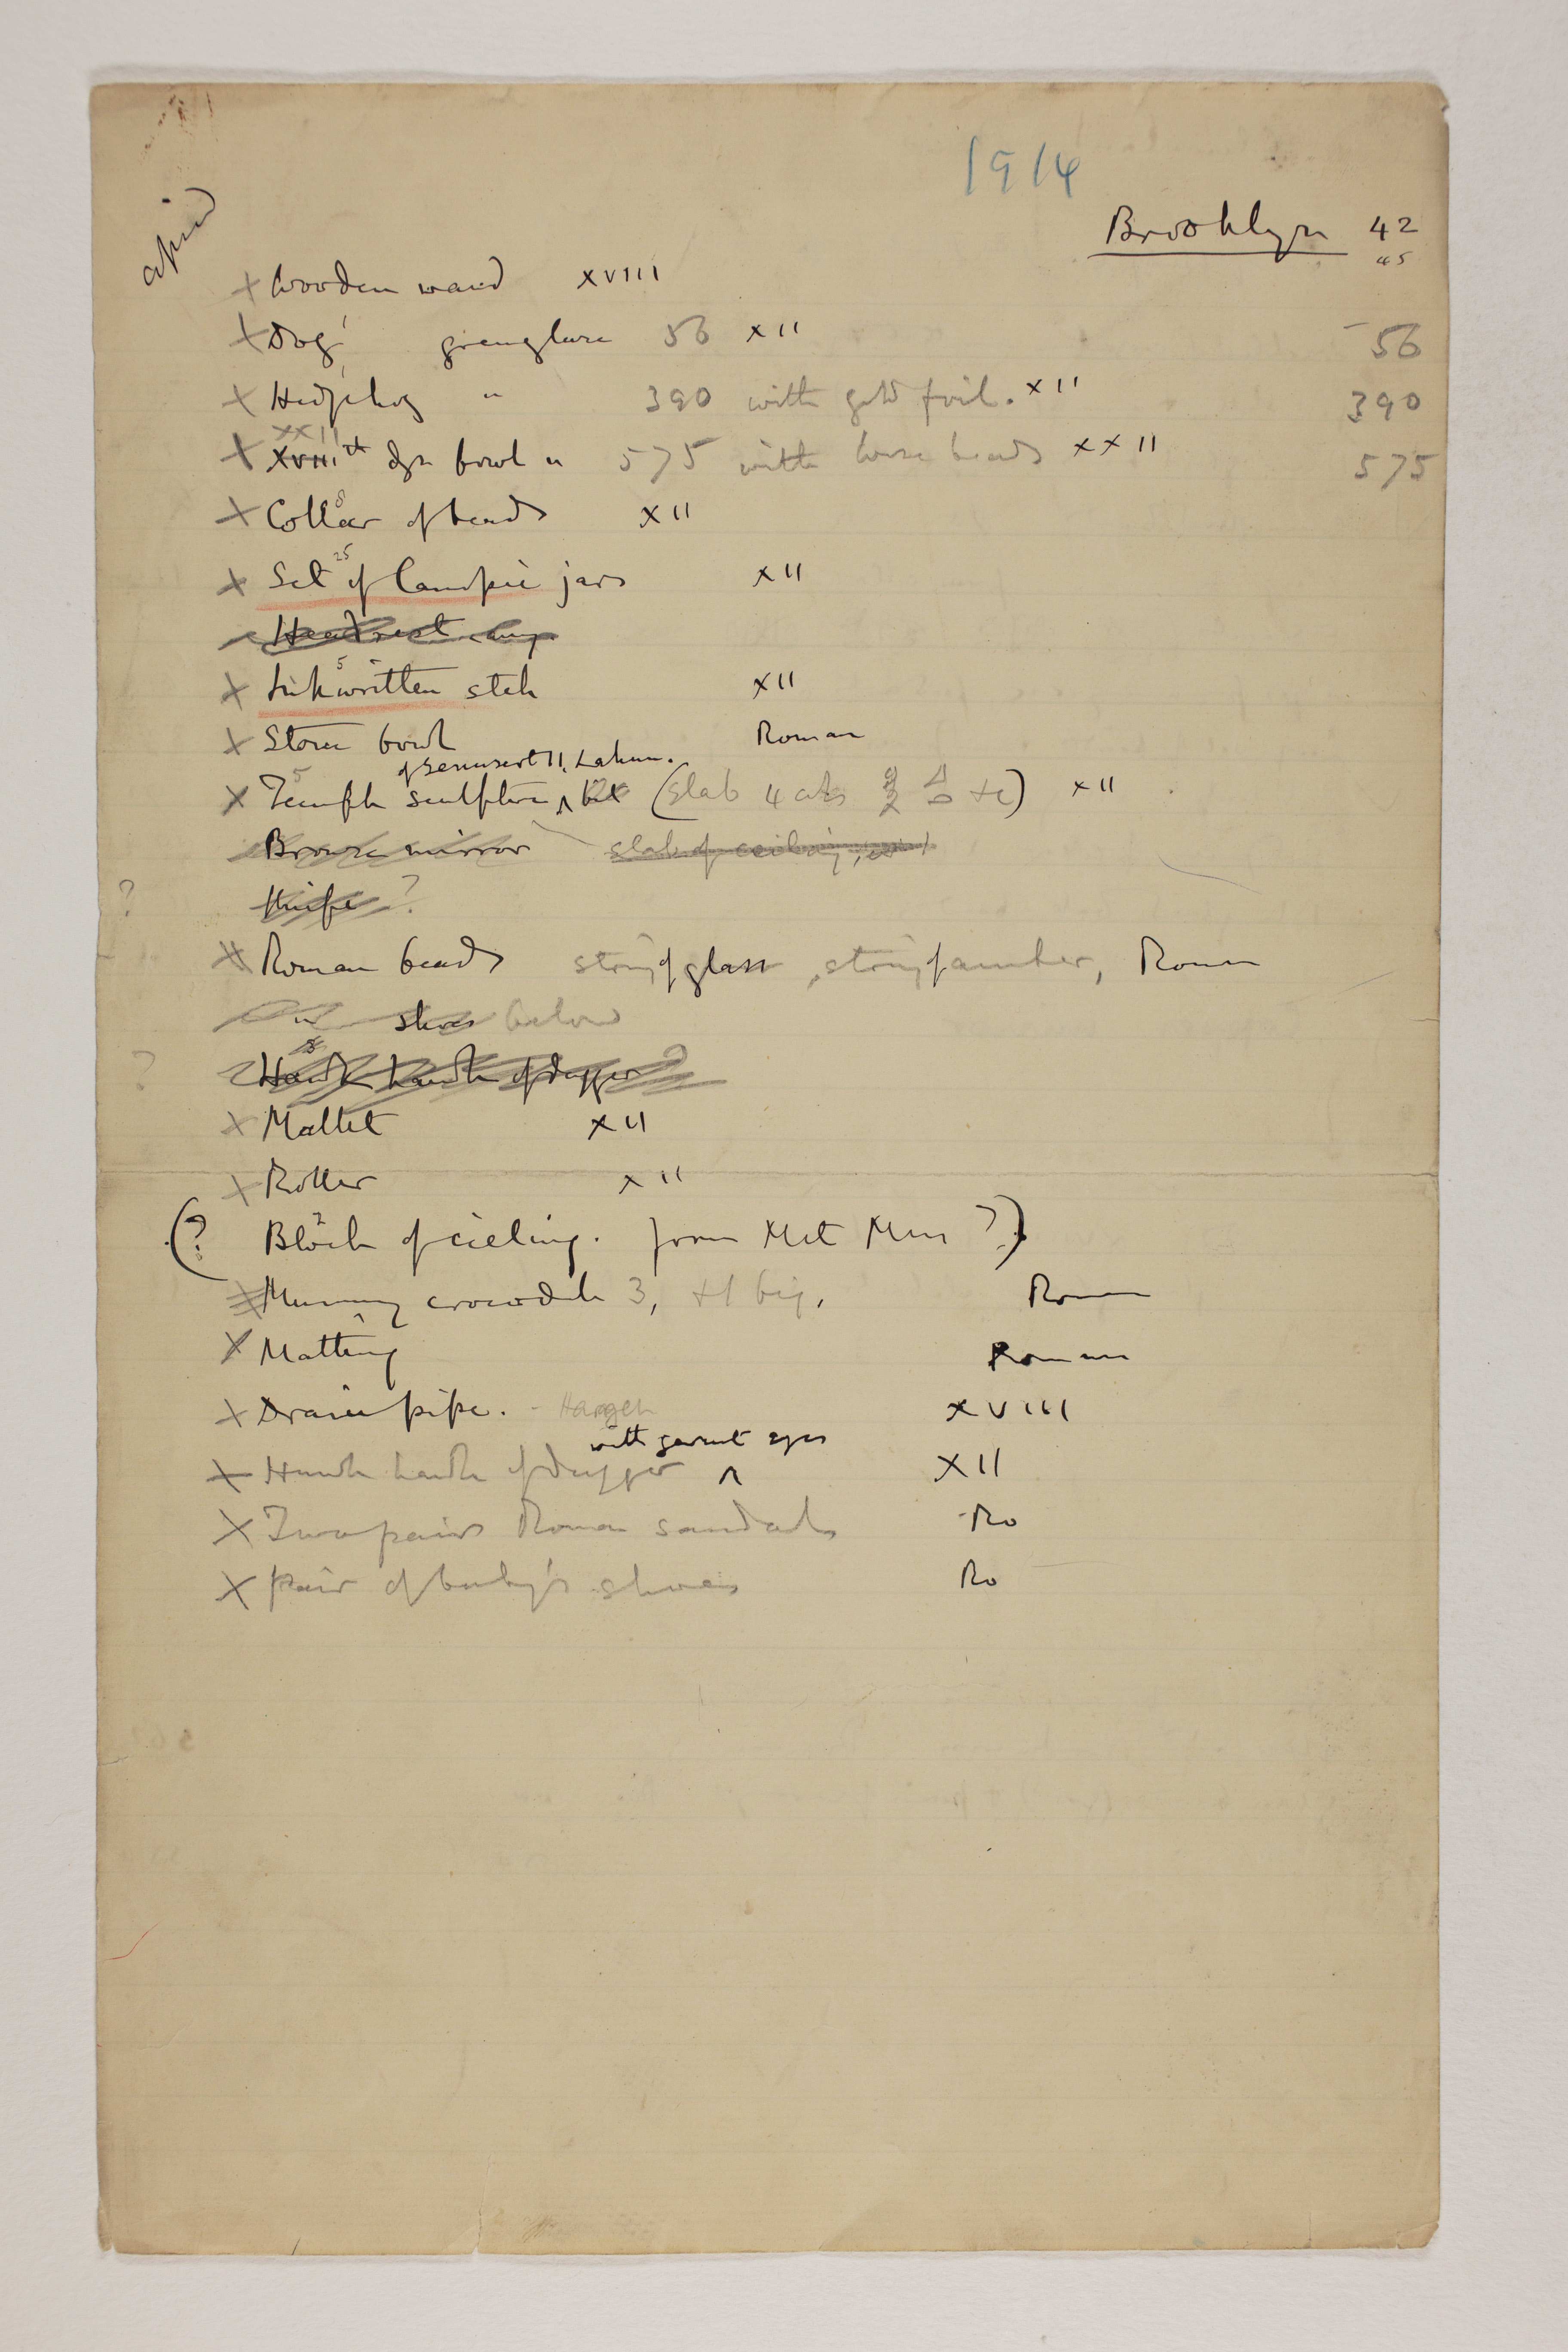 1914
Brooklyn 42
45
copied
X Wooden wand XVIII
X Dog' green glaze 56 XII 56
X Hedgehog " 390 with gold foil. XII 390
XXII
X XVIII dyn bowl " 575 with horse heads XXII 575
8
X Collar of beads XII
25
X Set of Canopic jars XII
Headrest
5
X Ink written stele XII
X Stone bowl Roman
of Senusert II, Lahun.
5
X Temple sculpture ^ bit (Slab 4 cols + c) XII
Bronze mirror slab of ceiling,
? Knife ?
X Roman beads string of glass, string of amber, Roman
" shoes below
8
? Hawk handle of dagger ?
X Mallet XII
X Roller XII
2
(? Block of cieling. from Met Mus ?)
X Mummy crocodile 3, + 1 big, Roman
1
X Matting Roman
X Drain pipe. - Harageh XVIII
with garnet eyes
X Hawk handle of dagger ^ XII
X Two pairs Roman sandals Ro
X Pair of baby's shoes Ro